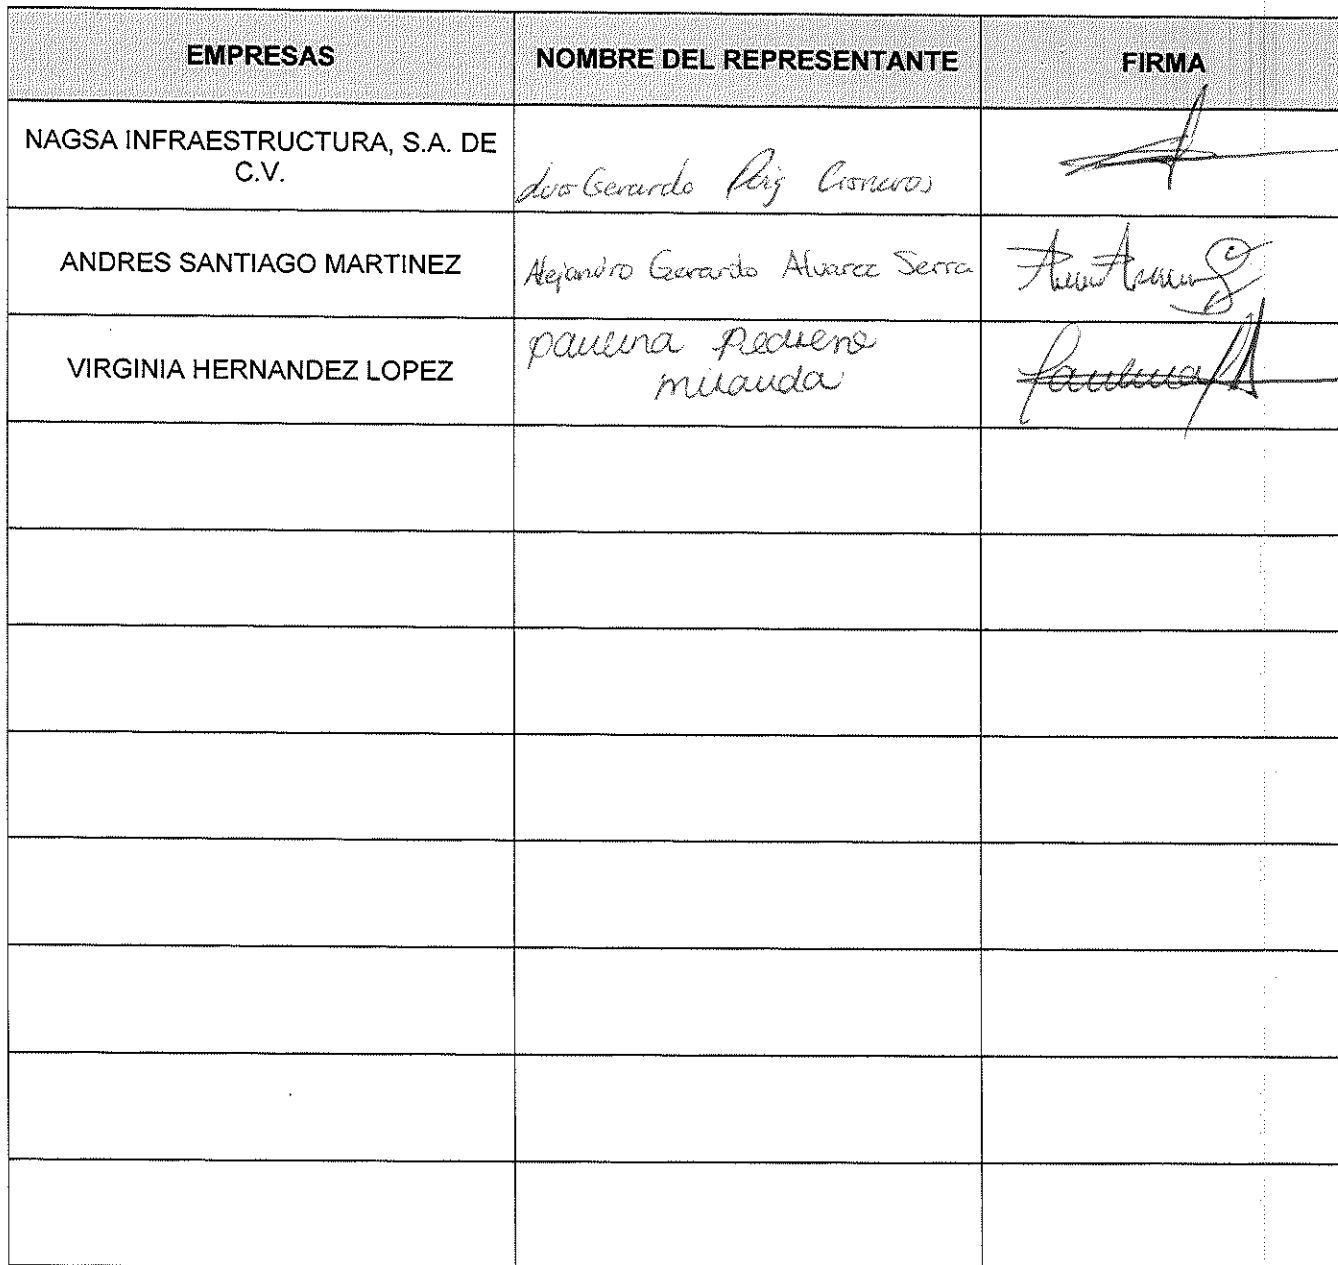 EMPRESAS NOMBRE DEL REPRESENTANTE FIRMA
NAGSA INFRAESTRUCTURA, S.A. DE
C.V.
Gerardo Puig Cisneros
ANDRES SANTIAGO MARTINEZ Alejandro Gerardo Alvarez Serra
VIRGINIA HERNANDEZ LOPEZ
paulina Pedreno
miranda
Paulina